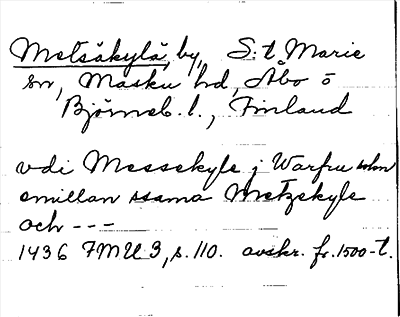 Metsäkylä, by, S:t Marie
sn, Masku hd, Åbo o
Björneb. l., Finland
vdi Messekyle j Warfru sokn
emillan ssama Metzekyle
och ---
1436 FMU 3, s. 110. avskr. fr. 1500-t.